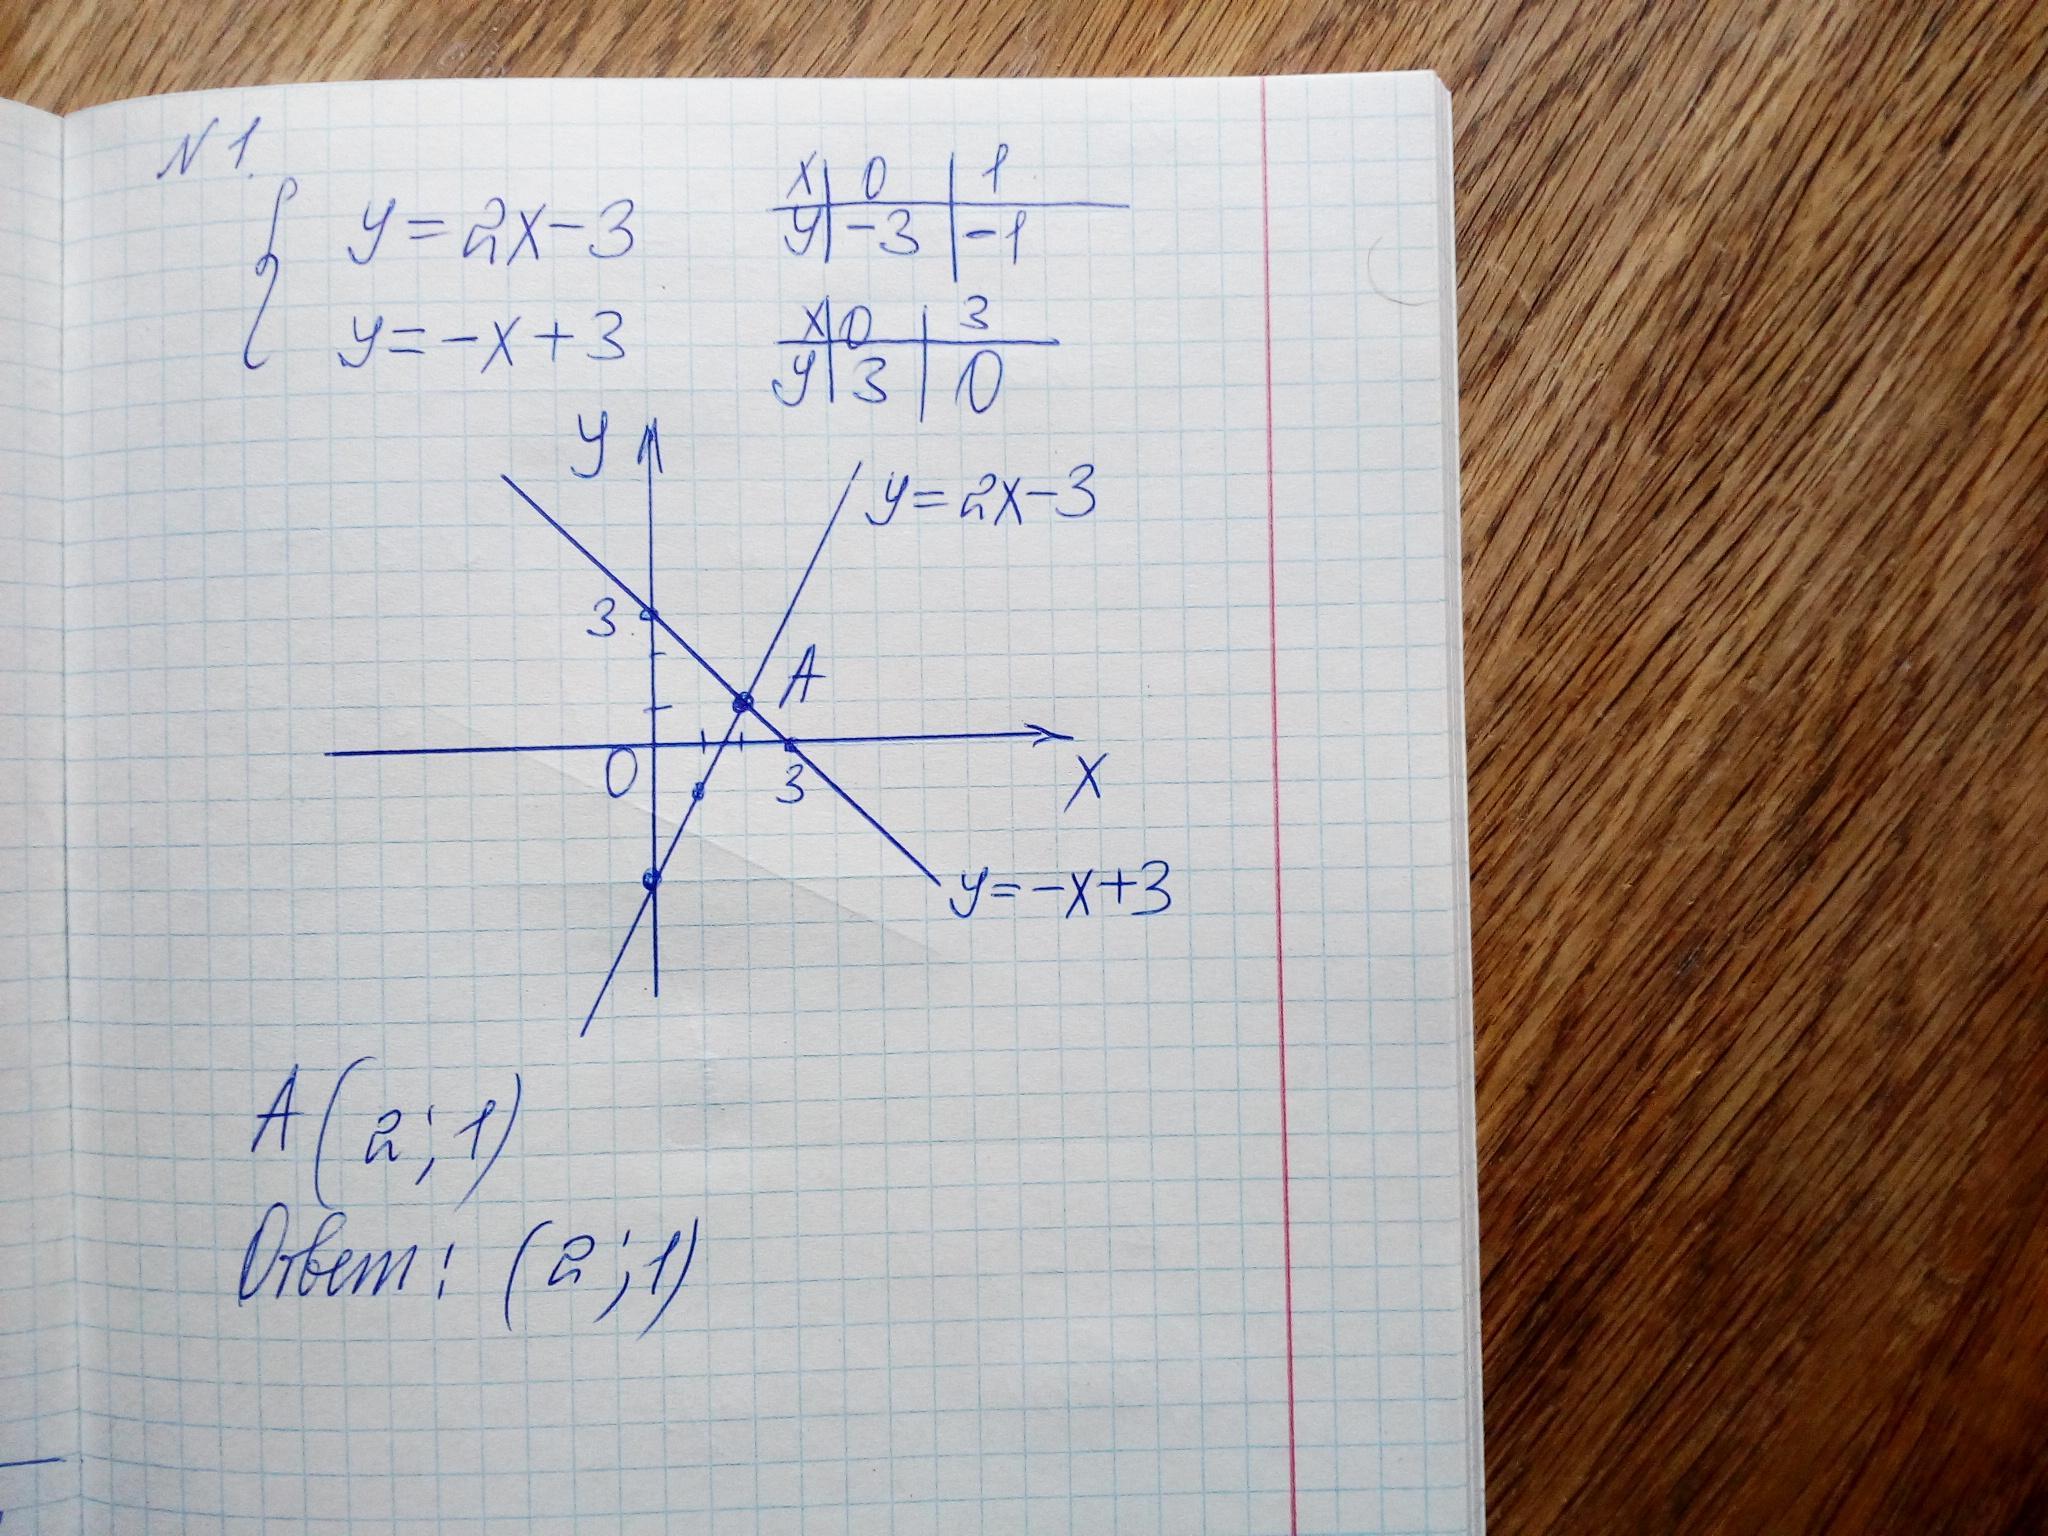 N 1.
y = 2x - 3
x 0 1
y -3 -1
y = -x + 3
x 0 3
y 3 0
y
y = 2x - 3
3
A
0
3
x
y = -x + 3
A (2; 1)
Ответ: (2; 1)